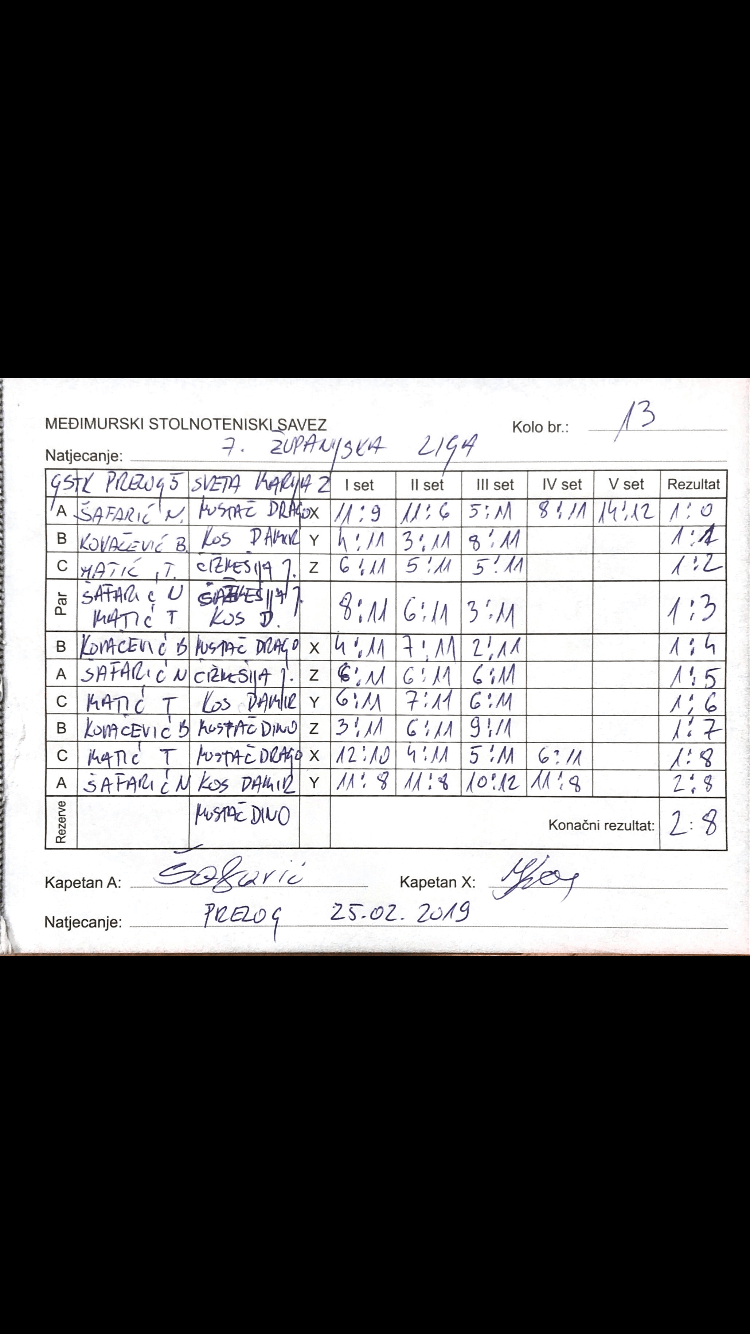 MEĐIMURSKI STOLNOTENISKI SAVEZ
Kolo br.: 13
Natjecanje: 7. ŽUPANIJSKA LIGA
GSTK PRELOG 5 SVETA MARIJA 2 I set II set III set IV set V set Rezultat
A ŠAFARIĆ N. MUSTAČ DRAGO X 11:9 11:6 5:11 8:11 14:12 1:0
B KOVAČEVIĆ B. KOS DAMIR Y 4:11 3:11 8:11 1:1
C MATIĆ, T. ČIZMEŠIJA J. Z 6:11 5:11 5:11 1:2
Par ŠAFARIĆ N ČIZMEŠIJA J. 8:11 6:11 3:11 1:3
MATIĆ T KOS D.
B KOVAČEVIĆ B MUSTAČ DRAGO X 4:11 7:11 2:11 1:4
A ŠAFARIĆ N ČIZMEŠIJA J. Z 6:11 6:11 6:11 1:5
C MATIĆ T KOS DAMIR Y 6:11 7:11 6:11 1:6
B KOVAČEVIĆ B MUSTAČ DINO Z 3:11 6:11 9:11 1:7
C MATIĆ T MUSTAČ DRAGO X 12:10 4:11 5:11 6:11 1:8
A ŠAFARIĆ N KOS DAMIR Y 11:8 11:8 10:12 11:8 2:8
Rezerve MUSTAČ DINO Konačni rezultat: 2:8
Kapetan A: Šafarić Kapetan X: Kos
Natjecanje: PRELOG 25.02.2019